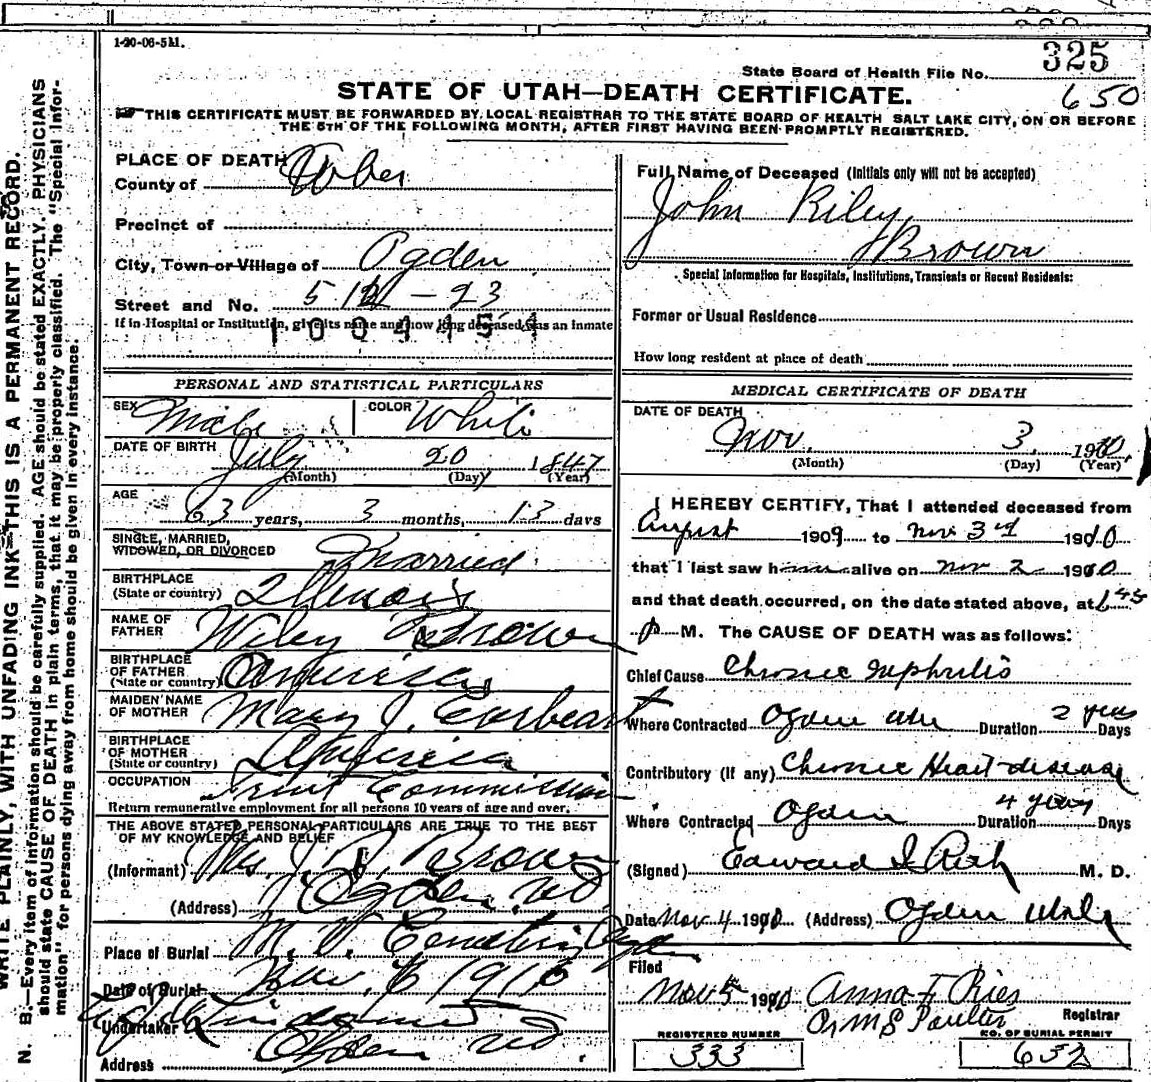 1-20-06-5M.
325
State Board of Health File No.
650
STATE OF UTAH—DEATH CERTIFICATE.
THIS CERTIFICATE MUST BE FORWARDED BY LOCAL REGISTRAR TO THE STATE BOARD OF HEALTH SALT LAKE CITY, ON OR BEFORE
THE 5TH OF THE FOLLOWING MONTH, AFTER FIRST HAVING BEEN PROMPTLY REGISTERED.
PLACE OF DEATH
County of Weber
Precinct of
City, Town or Village of Ogden
Street and No. - 23
If in Hospital or Institution, give its name and how long deceased was an inmate
1004154
PERSONAL AND STATISTICAL PARTICULARS
SEX Male COLOR White
DATE OF BIRTH July 20 1847
(Month) (Day) (Year)
AGE
63 years, 3 months, 13 days
SINGLE, MARRIED,
WIDOWED, OR DIVORCED Married
BIRTHPLACE
(State or country) Illinois
NAME OF
FATHER Wiley Brown
BIRTHPLACE
OF FATHER
(State or country) America
MAIDEN NAME
OF MOTHER Mary J. Everbeart
BIRTHPLACE
OF MOTHER
(State or country) America
OCCUPATION Fruit Commission
Return remunerative employment for all persons 10 years of age and over.
THE ABOVE STATED PERSONAL PARTICULARS ARE TRUE TO THE BEST
OF MY KNOWLEDGE AND BELIEF
(Informant) Mrs. J. R. Brown
(Address) Ogden
Place of Burial Ogden
Date of Burial Nov. 6 1910
Undertaker
Address Ogden
Full Name of Deceased (Initials only will not be accepted)
John Riley
Brown
Special Information for Hospitals, Institutions, Transients or Recent Residents:
Former or Usual Residence
How long resident at place of death
MEDICAL CERTIFICATE OF DEATH
DATE OF DEATH
Nov. 3. 1910.
(Month) (Day) (Year)
I HEREBY CERTIFY, That I attended deceased from
August 1909 to Nov 3rd 1910
that I last saw him alive on Nov 2 1910
and that death occurred, on the date stated above, at 6 45
P M. The CAUSE OF DEATH was as follows:
Chief Cause Chronic nephritis
Where Contracted Ogden Utah Duration 2 years Days
Contributory (If any) Chronic Heart disease
Where Contracted Ogden Duration 4 years Days
(Signed) Edward I Rich M. D.
Date Nov 4 1910 (Address) Ogden Utah
Filed
Nov 5 1910 Anna F Ries
Registrar
REGISTERED NUMBER
333
NO. OF BURIAL PERMIT
632
N. B.—Every item of information should be carefully supplied. AGE should be stated EXACTLY. PHYSICIANS
should state CAUSE OF DEATH in plain terms, that it may be properly classified. The "Special Infor-
mation" for persons dying away from home should be given in every instance.
WRITE PLAINLY, WITH UNFADING INK—THIS IS A PERMANENT RECORD.